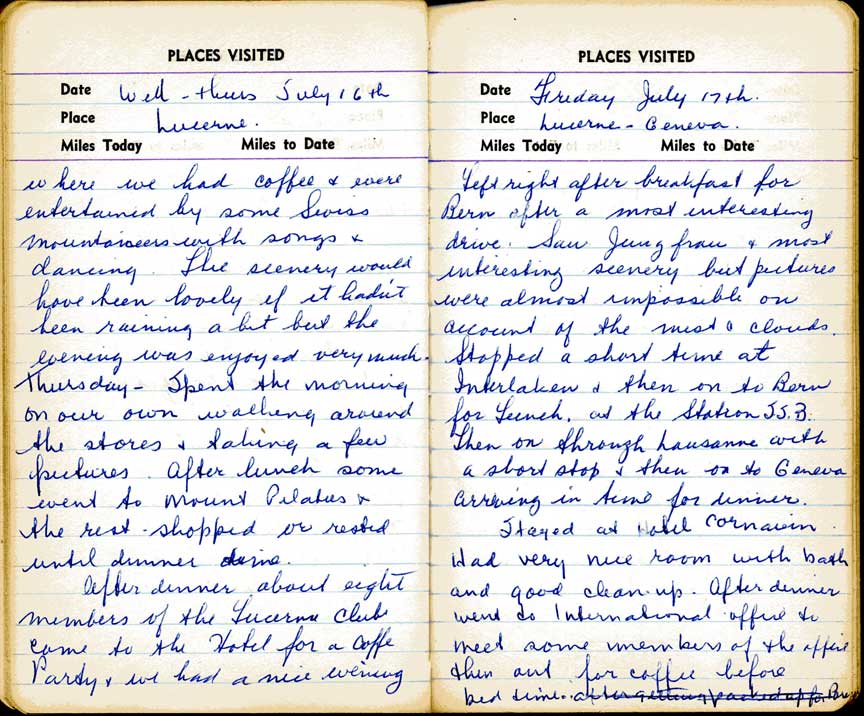 PLACES VISITED
Date Wed - thurs July 16th
Place Lucerne.
Miles Today Miles to Date
where we had coffee & were
entertained by some Swiss
mountaineers with songs &
dancing. The scenery would
have been lovely if it hadn't
been raining a bit but the
evening was enjoyed very much.
Thursday - Spent the morning
on our own walking around
the stores & taking a few
pictures. After lunch some
went to Mount Pilatus &
the rest shopped or rested
until dinner
After dinner about eight
members of the Lucerne Club
came to the Hotel for a coffe
Party & we had a nice evening
PLACES VISITED
Date Friday July 17th.
Place Lucerne - Geneva.
Miles Today Miles to Date
Left right after breakfast for
Bern after a most interesting
drive. Saw Jungfrau & most
interesting scenery but pictures
were almost impossible on
account of the mist & clouds.
Stopped a short time at
Interlaken & then on to Bern
for Lunch. at the Station
Then on through Lausanne with
a short stop & then on to Geneva
arriving in time for dinner.
Stayed at Hotel Cornavin.
Had very nice room with bath
and good clean-up. After dinner
went to International office to
meet some members of the office
then out for coffee before
bed time. after getting packed up for Paris